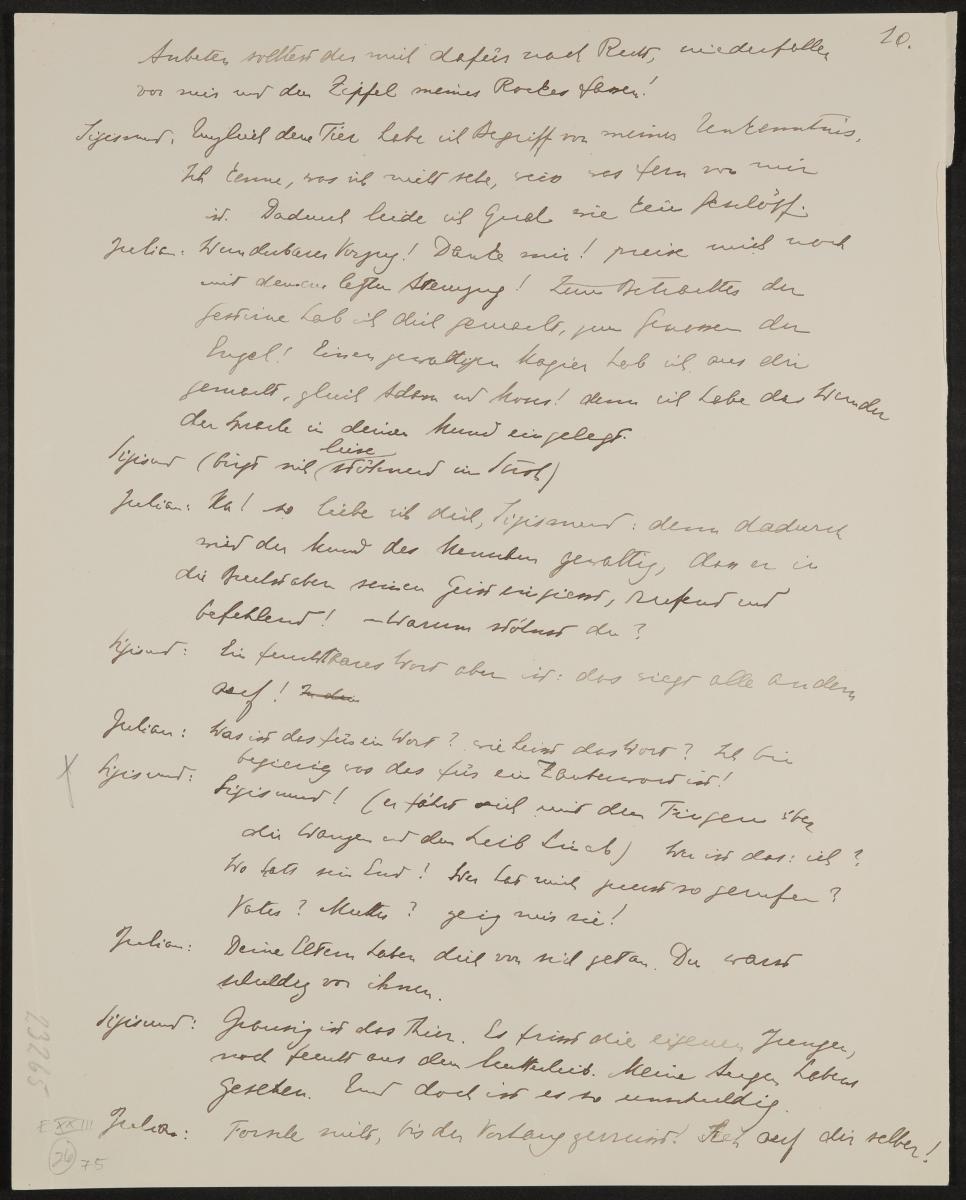 10.
Anbeten solltest du mich dafür nach Recht, niederfallen
vor mir und den Zipfel meines Rockes fassen!
Sigismund. Ungleich dem Tier habe ich Begriff von meiner Unkenntnis.
Ich kenne, was ich nicht sehe, weiss was fern von mir
ist. Dadurch leide ich Qual wie kein Geschöpf.
Julian: Wunderbarer Vorzug! Danke mir! preise mich noch
mit deinem letzten Atemzug! Zum Betrachter der
Gestirne hab ich dich gemacht, zum Genossen der
Engel! Einen gewaltigen Magier hab ich aus dir
gemacht, gleich Adam und Moses! denn ich habe das Wunder
der Sprache in deinen Mund eingelegt.
leise
Sigismund (birgt sich stöhnend im Stroh)
Julian: Ha! so liebe ich dich, Sigismund: denn dadurch
wird der Mund des Menschen gewaltig, dass er in
die Buchstaben seinen Geist eingiesst, rufend und
befehlend! – Warum stöhnst du?
Sigismund: Ein furchtbares Wort aber ist: das wiegt alle andern
auf! In dem
Julian: Was ist das für ein Wort? wie heisst das Wort? Ich bin
begierig was das für ein Zauberwort ist!
X
Sigismund: Sigismund! (er fährt sich mit den Fingern über
die Wangen und den Leib hinab) Wer ist das: ich?
Wo hats sein End! Wer hat mich zuerst so gerufen?
Vater? Mutter? zeig mir sie!
Julian: Deine Eltern haben dich von sich getan. Du warst
schuldig vor ihnen.
Sigismund: Grausig ist das Thier. Es frisst die eigenen Jungen,
noch feucht aus dem Mutterleib. Meine Augen habens
gesehen. Und doch ist es so unschuldig.
Julian: Forsche nicht, bis der Vorhang zerreisst! Steh auf dir selber!
23265
E XXIII
26 75